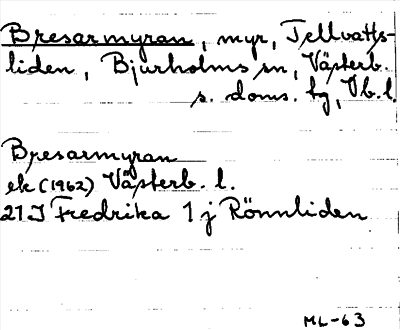 Bresarmyran, myr, Tellvatts-
liden, Bjurholms sn, Västerb.
s. doms. tg, Vb.l.
Bresarmyran
ek (1962) Västerb. l.
21 I Fredrika 1 j Rönnliden
ML-63